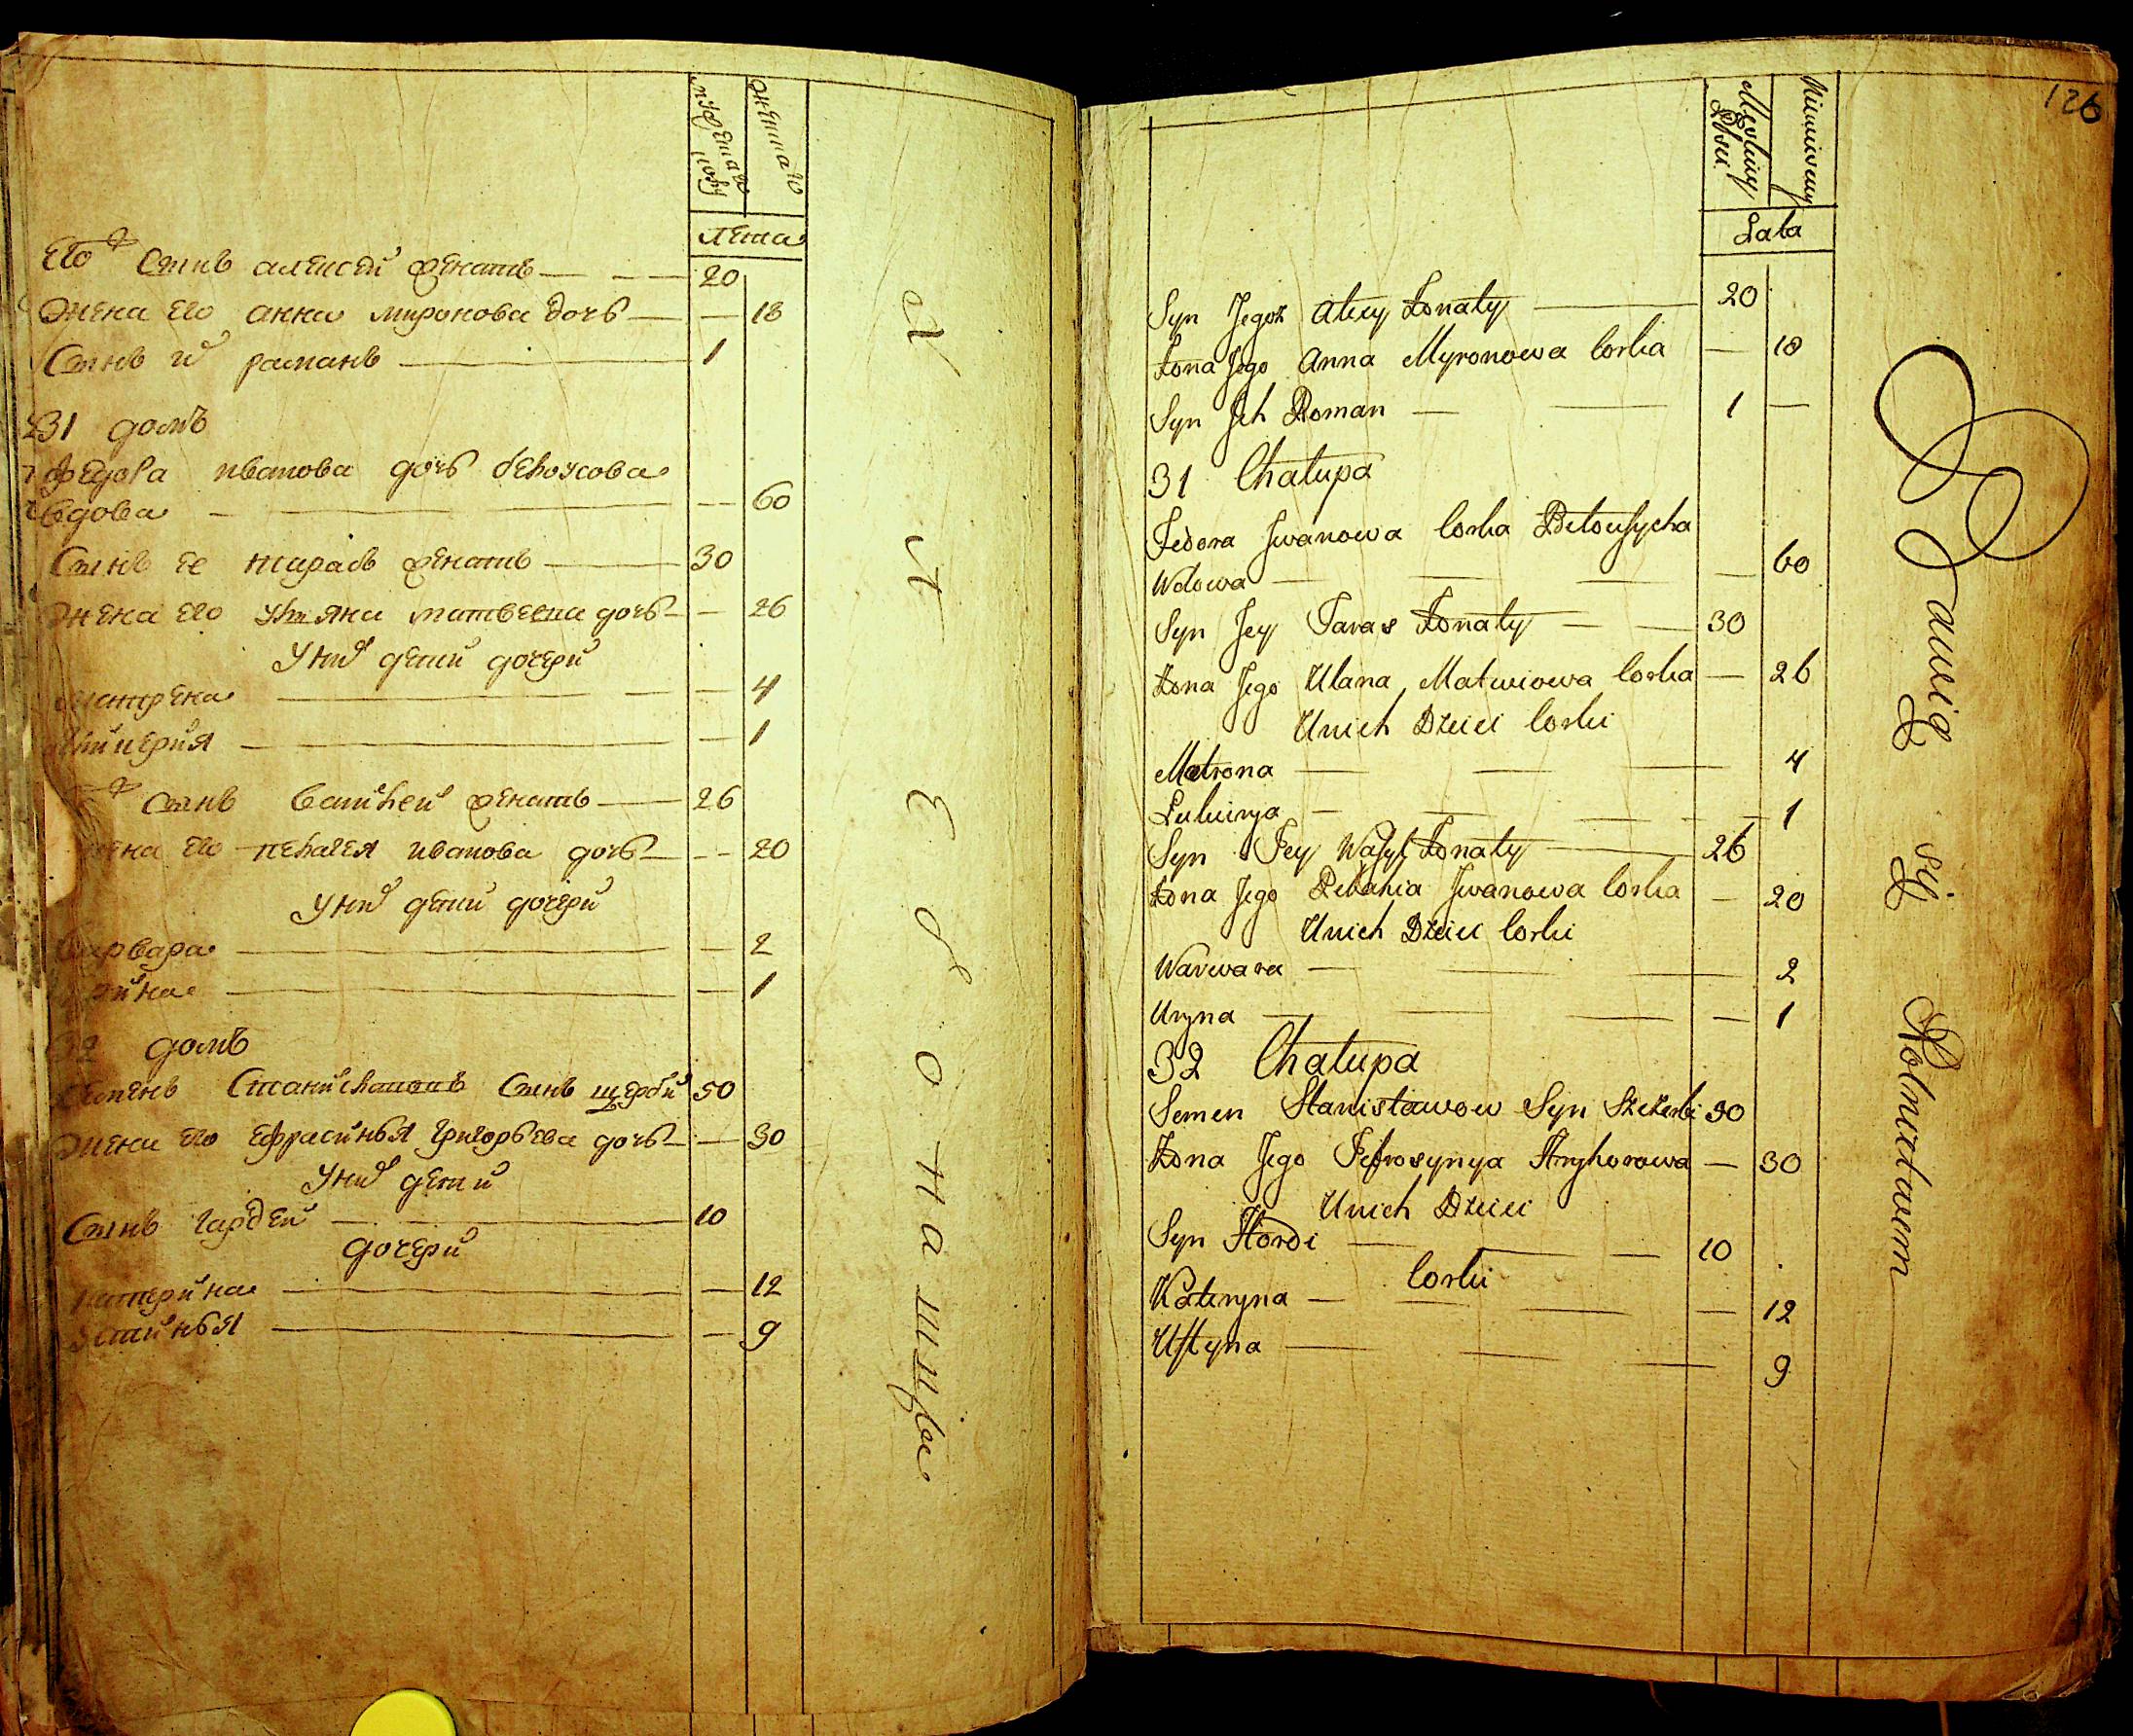 мужеска полу
женска
лета
Его Сынъ алексей женатъ 20
жена его анна миронова дочь 18
Сынъ и романъ 1
31 домъ
Федора иванова дочь белоусова
вдова 60
Сынъ ее тарасъ женатъ 30
жена его уляна матвеева дочь 26
У них дети дочери
матрена 4
1
Сынъ василей женатъ 26
жена его пелагея иванова дочь 20
У них дети дочери
варвара 2
1
32 домъ
Семенъ Станиславовъ Сынъ щерби 50
жена его ефрасинья григорьева дочь 30
У них дети
Сынъ гардей 10
дочери
катерина 12
устинья 9
126
Męskiey Płci
Niewiescey
Lata
Syn Jegoż Alexy Żonaty 20
Żona Jego Anna Myronowa Corka 18
Syn Jch Roman 1
31 Chałupa
Fedora Jwanowa Corka Biłousycha
Wdowa 60
Syn Jey Taras Żonaty 30
Żona Jego Ulana Matwiowa Corka 26
Unich Dzieci Corki
Matrona 4
Lukirya 1
Syn Jey Wasyl Żonaty 26
Żona Jego Pelahia Jwanowa Corka 20
Unich Dzieci Corki
Warwara 2
Uryna 1
32 Chałupa
Semen Stanisławow Syn Szczerbi 50
Żona Jego Jefrosynya Hryhorowa 30
Unich Dzieci
Syn Hordi 10
Corki
Kateryna 12
Ustyna 9
Bawią się Rolnictwem